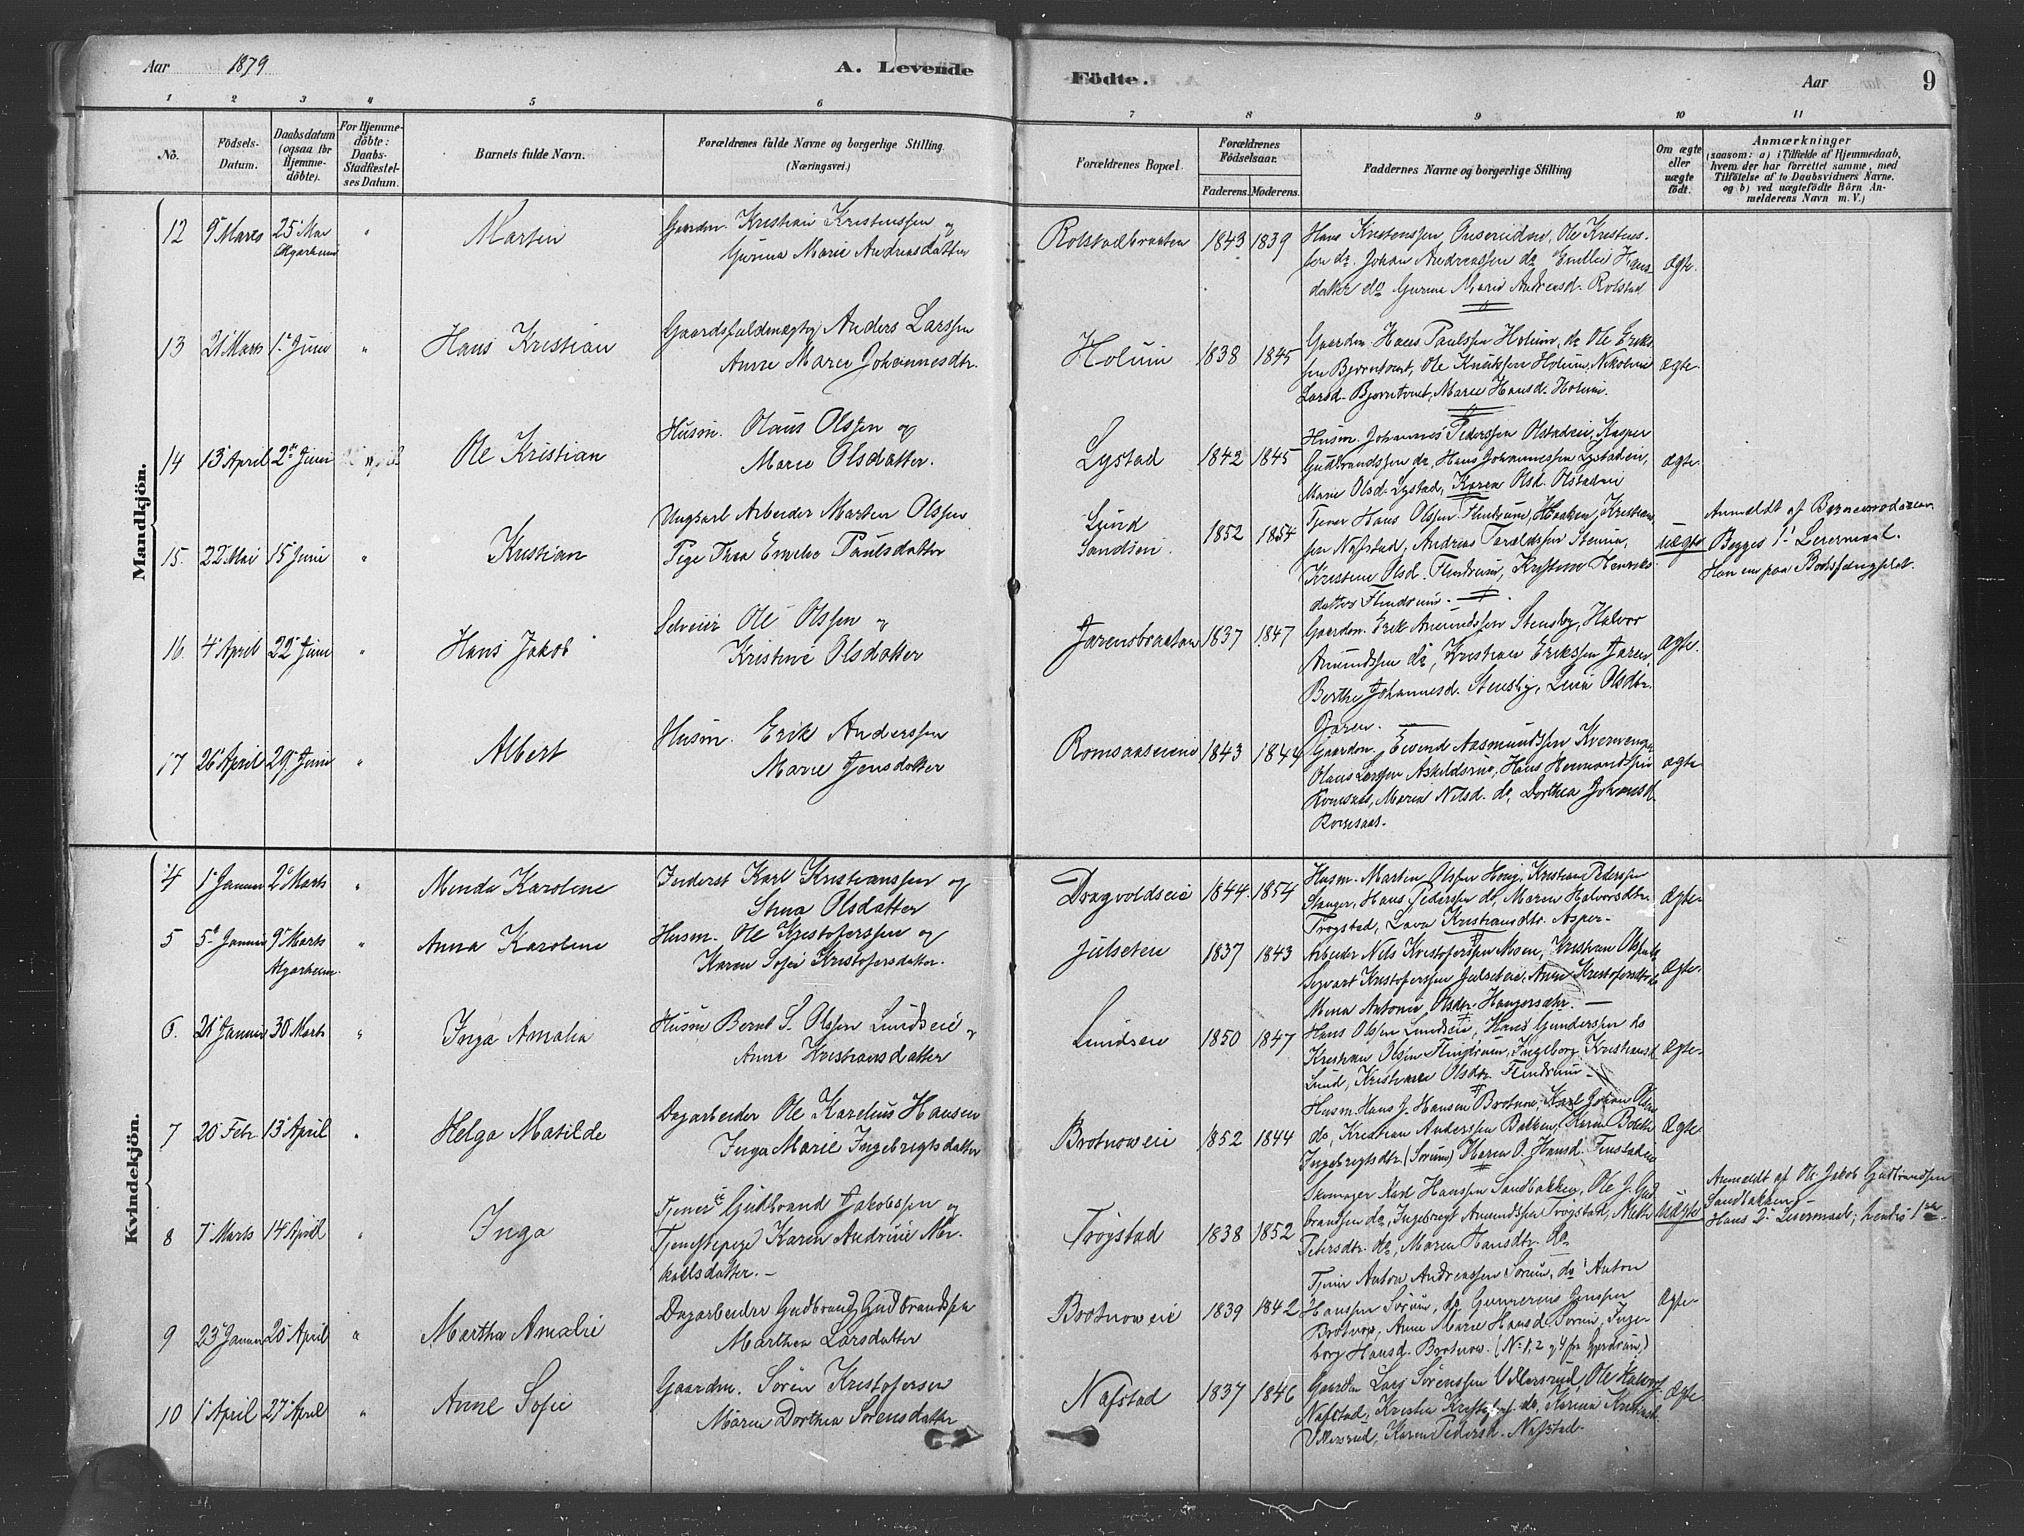 Aar 1879
A. Levende
Födte.
Aar
9
1 2 3 4 5 6 7 8 9 10 11
No.
Födsels-
Datum.
Daabsdatum
(ogsaa för
Hjemme-
döbte).
For Hjemme-
döbte:
Daabs-
Stadfæstel-
ses Datum.
Barnets fulde Navn.
Forældrenes fulde Navne og borgerlige Stilling
(Næringsvei.)
Forældrenes Bopæl.
Forældrenes
Födselsaar.
Faderens. Moderens.
Faddernes Navne og borgerlige Stilling
Om ægte
eller
uægte
födt.
Anmærkninger
(saasom: a) i Tilfælde af Hjemmedaab,
hvem der har forrettet samme, med
Tilföielse af to Daabsvidners Navne,
og b) ved uægtefödte Börn An-
melderens Navn m. V.)
Mandkjön.
12 9 Marts 25 Mai " Martin Gaardm. Kristian Kristenssen og
Gurina Marie Andreasdatter
Rolstadbraaten 1843 1839 Hans Kristenssen Ole Kristens-
sen do Johan Andreassen do Emilie Hans-
datter do Gurine Marie Andreasd. Rolstad
ægte.
13 21 Marts 1 Juni " Hans Kristian Anders Larssen
Anne Marie Johannesdtr.
Holum 1838 1845 Gaardm. Hans Paulssen Holum, do Ole Erik-
sen Ole Holum, Nikoline
Larsd. Marie Hansd. Holum.
ægte.
14 13 April 2 Juni Ole Kristian Husm. Olaus Olssen og
Marie Olsdatter.
Lystad 1842 1845 Husm. Johannes Pederssen Olstadeie, Kasper
Gudbrandssen do, Hans Johannessen Lystadeie,
Marie Olsd. Lystad, Karen Olsd. Olstadeie
ægte.
15. 22 Mai 15 Juni " Kristian Ungkarl Arbeider Marten Olssen
Pige Thea Emelie Paulsdatter
Lund 1852 1854 Tjener Hans Olssen Flindrum, Haaken Kristian-
sen Nafstad, Andreas
Kristine Olsd. Flindrum, Henriks-
datter Flindrum.
uægte
Anmeldt af
Begges 1 Leiermaal.
Han er paa Bodsfængslet.
16. 4 April 22 Juni " Hans Jakob Selveier Ole Olssen og
Kristine Olsdatter
Jarensbraaten 1837 1847 Gaardm. Erik Amundssen Stensby, Halvor
Amundssen do, Kristian Erikssen Jaren,
Berthe Johannesd. Stensby, Olsdtr.
Jaren.
ægte.
17 26 April 29 Juni " Albert Husm. Erik Anderssen
Marie Jensdatter
Romsaaseie 1843 1844 Gaardm. Eivend Aasmundssen
Olaus Larssen Hans
Romsaas, Maren Nilsd. do, Dorthea Johansd.
Romsaas.
ægte
Kvindekjön.
4 1 Januar 2 Marts " Minda Karoline Inderst Karl Kristianssen og
Stina Olsdatter
Dragvoldseie 1844. 1854 Husm. Martin Olssen Kristian Pederssen
Stanger, Hans Pederssen do, Maren Halvorsdtr.
Trøgstad, Kristiansdtr. Asper.
Ægte
5 5 Januar 9 Marts " Anna Karoline Husm. Ole Kristoferssen og
Karen Sofie Kristofersdatter.
Julseteie 1837 1843 Arbeider Nils Kristoferssen Moen, Kristian
Sigvart Kristoferssen Julseteie, Anne Kristofersdtr. do
Mina Antonie Olsdtr.
Ægte-
6. 21 Januar 30 Marts " Inga Amalia Husm Bernt S. Olssen Lundseie og
Anne Kristiansdatter
Lundseie 1850 1847 Hans Olssen Lundseie, Hans Gunderssen do
Kristian Olsen Flindrum, Ingeborg Kristiansd.
Lund, Kristiane Olsdtr. Flindrum-
Ægte-
7 20 Febr. 13 April " Helga Matilde Dagarbeider Ole Karelius Hansen
Inga Marie Ingebrigtsdatter
Brotnoweie 1852 1844 Husm. Hans J. Hansen Brotnow, Karl Johan
do, Kristian Anderssen Bakken, Karen
Ingebrigtsdtr. (Sørum) Maren O. Hansd. Finstadeie
Ægte
8 7 Marts 14 April " Inga Tjener Gudbrand Jakobssen og
Tjenestepige Karen Andrine Mi-
kaelsdatter.-
Trøgstad 1838 1852 Skomager Karl Hanssen Sandbakken, Ole J. Gud-
brandsen do, Ingebregt Amundssen Trøgstad, Mathe
Petersdtr. do, Maren Hansdtr. do
Uægte
Anmeldt af Ole Jakob Gudbrandssen
Sandbakken-
Hans 2 Leiermaal; hendes 1ste
9 23 Januar 20 April " Martha Amalie Dagarbeider Gudbrand Gudbrandssen
Marthea Larsdatter
Brotnoweie 1839 1842 Tjener Anton Andreassen Sørum, do Anton
Hanssen Sørum, do Gunnerius Jenssen
Brotnow, Anne Marie Hansd. Sørum, Inge-
borg Hansd. Brotnow. (No 1, 2 og 4 fra Gjerdrum,)
Ægte-
10 1 April 27 April " Anne Sofie Gaardm. Sören Kristofersen
Maren Dorthea Sørensdatter
Nafstad 1837 1846 Gaardm Lars Sørenssen Ullersrud, Ole
Nafstad, Kristen do, Karina
Ullersrud, Karen Pedersd. Nafstad-
Ægte-